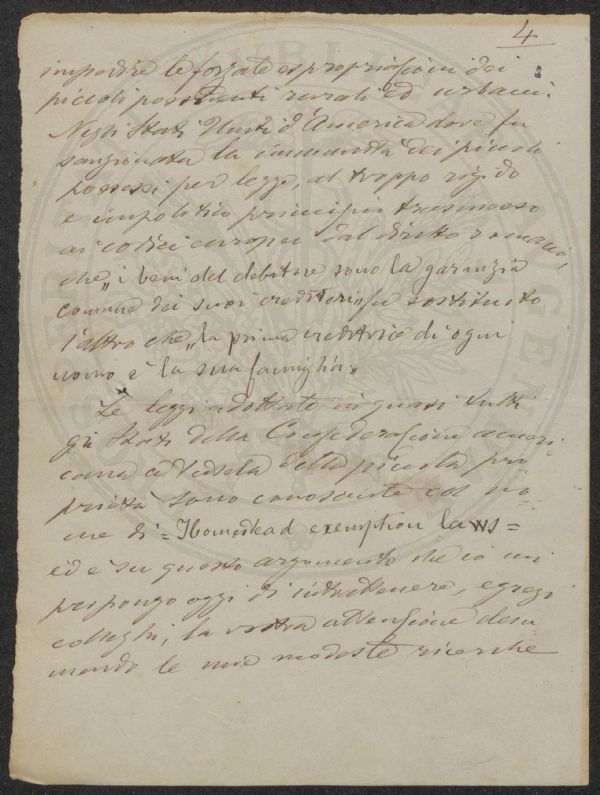 4
impedire le forzate espropriazioni dei
piccoli possidenti rurali ed urbani.
Negli Stati Uniti d'America dove fu
sanzionata la immunità dei piccoli
possessi per legge, al troppo rigido
e impolitico principio trasmesso
ai codici europei dal diritto romano,
che „i beni del debitore sono la garanzia
comune dei suoi creditori„ fu sostituito
l'altro che „la prima creditrice di ogni
uomo è la sua famiglia„
Le leggi adottate in quasi tutti
gli Stati della Confederazione ameri-
cana a tutela della piccola pro-
prietà sono conosciute col no-
me di = Homestead exemption laws =
ed è su questo argomento che io mi
propongo oggi di intrattenere, egregi
colleghi, la vostra attenzione desu
mendo le mie modeste ricerche